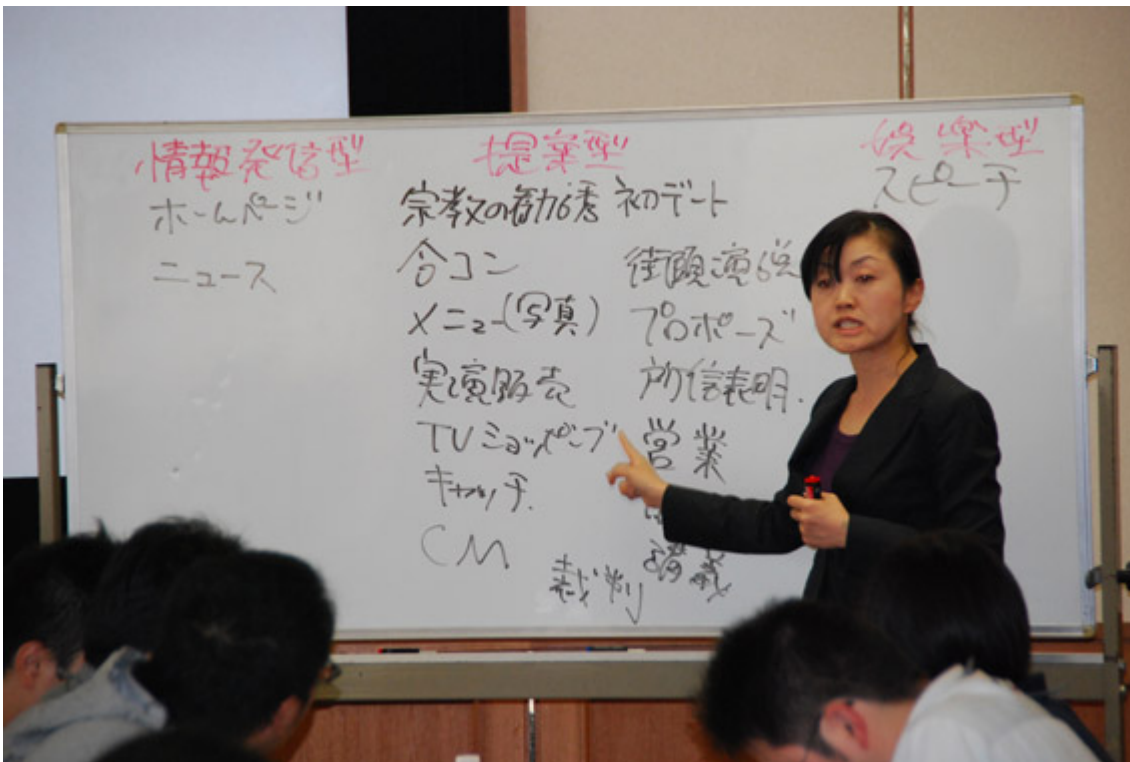 情報発信型
ホームページ
ニュース
提案型
宗教の勧誘
合コン
メニュー(写真)
実演販売
TVショッピング
キャッチ
CM
初デート
街頭演説
プロポーズ
所信表明.
営業
講義
裁判
娯楽型
スピーチ